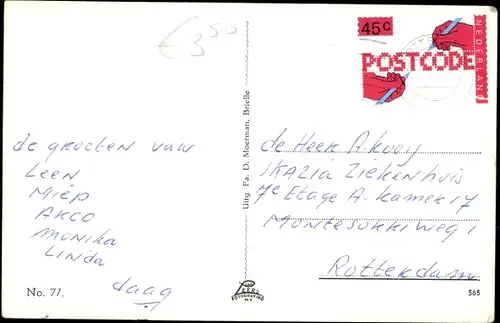 € 3,50
45c
POSTCODE
NEDERLAND
de groeten van
Leen
Miep
AKCO
monika
LINDA
daag
No. 77.
Uitg. Fa. D. Moerman, Brielle
de Heer A. Kooy
IKAZIA Ziekenhuis
7e Etage A. kamer 17
MONTESORRIWEG 1
Rotterdam
565